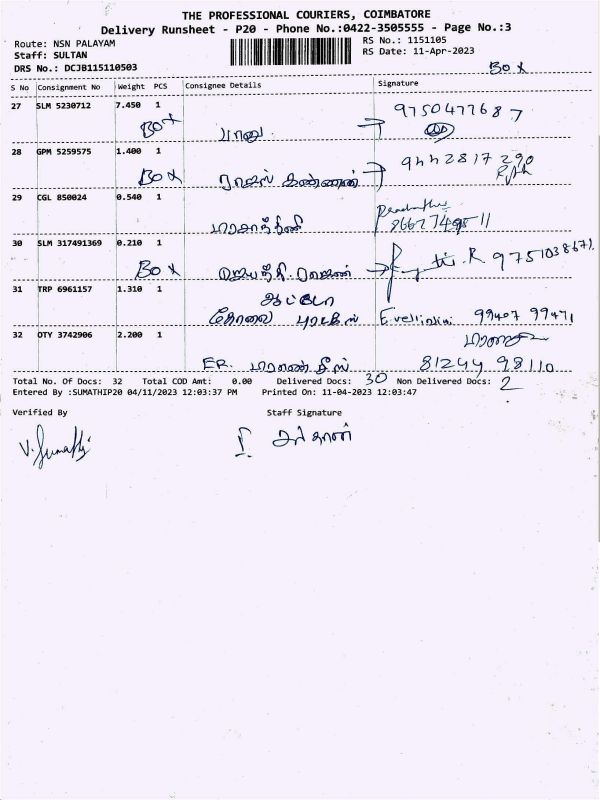 THE PROFESSIONAL COURIERS, COIMBATORE
Delivery Runsheet - P20 - Phone No.:0422-3505555 - Page No.:3
Route: NSN PALAYAM RS No.: 1151105
Staff: SULTAN RS Date: 11-Apr-2023
DRS No.: DCJB115110503
Box
S No Consignment No Weight PCS Consignee Details Signature
27 SLM 5230712 7.450 1
Box பானு
28 GPM 5259575 1.400 1 9442817290
Box ராஜஸ் கண்ணன்
29 CGL 850024 0.540 1
30 SLM 317491369 0.210 1
Box
31 TRP 6961157 1.310 1 ஆட்டோ
கோவை 99407 99471
32 OTY 3742906 2.200 1
ER. 81244 98110
Total No. Of Docs: 32 Total COD Amt: 0.00 Delivered Docs: 30 Non Delivered Docs: 2
Entered By :SUMATHIP20 04/11/2023 12:03:37 PM Printed On: 11-04-2023 12:03:47
Verified By Staff Signature
V. Sumathi